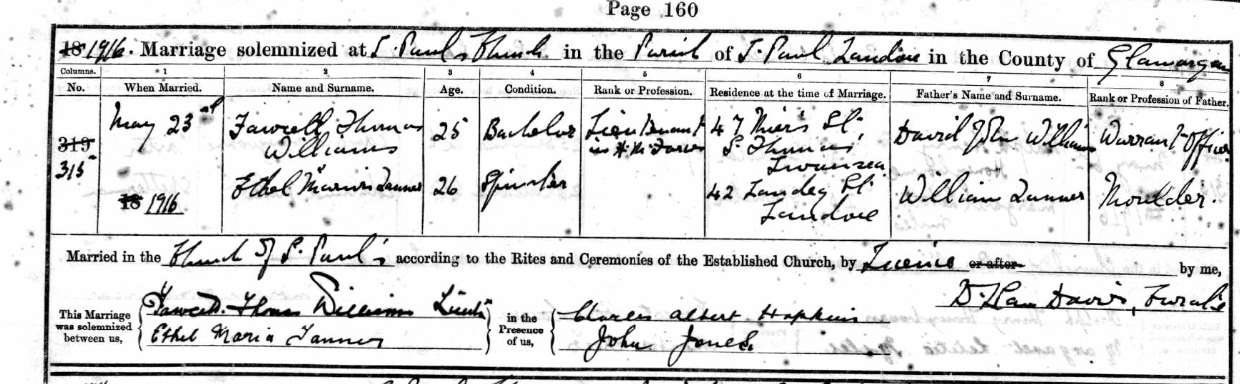 Page 160
18 1916. Marriage solemnized at S. Paul's Church in the Parish of S. Paul Landore in the County of Glamorgan
Columns. 1 2 3 4 5 6 7 8
No. When Married. Name and Surname. Age. Condition. Rank or Profession. Residence at the time of Marriage. Father's Name and Surname. Rank or Profession of Father.
319 315 May 23rd 18 1916
Fawcett Thomas Williams 25 Bachelor Lieutenant in H.M. Forces 47 Miers St; S. Thomas Swansea David John Williams Warrant Officer
Ethel Maria Tanner 26 Spinster 42 Landeg St: Landore William Tanner Moulder.
Married in the Church of S. Paul's according to the Rites and Ceremonies of the Established Church, by Licence or after by me,
Davies, Curate
This Marriage was solemnized between us, Fawcett Thomas Williams Lieut. in the Presence of us, Charles Albert Hopkins
Ethel Maria Tanner John Jones.